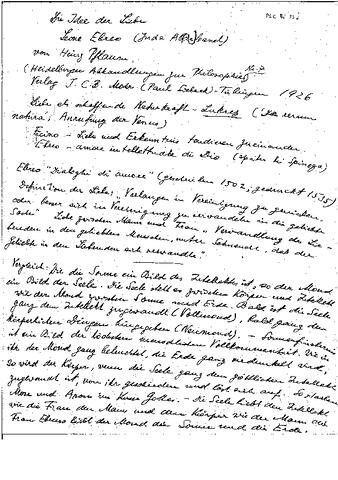 Die Idee der Liebe
Leone Ebreo (Juda Abarbanel)
von Heinz Pflaum
(Heidelberger Abhandlungen zur Philosophie) No. 7
Verlag J.C.B. Mohr (Paul Siebeck) Tübingen 1926
Liebe als schaffende Naturkraft – Lukrez ( De rerum
natura, Anrufung der Venus)
Ficino – Liebe und Erkenntnis tendieren zueinander.
Ebreo – amore intellettuale di Dio (später bei Spinoza)
Ebreo "Dialoghi di amore" (geschrieben 1502, gedruckt 1535)
Definition der Liebe: Verlangen in Vereinigung zu geniessen
oder besser sich in Vereinigung zu verwandeln in die geliebte
Seele" Liebe zwischen Mann und Frau, "Verwandlung des Lie-
benden in den geliebten Menschen, mit der Sehnsucht, dass der
Geliebte in den Liebenden sich verwandle."
Vergleich: Wie die Sonne ein Bild des Intellektes ist, so der Mond
ein Bild der Seele. Die Seele steht zwischen Körper und Intellekt
wie der Mond zwischen Sonne und Erde. Bald ist die Seele
ganz dem Intellekt zugewandt (Vollmond), bald ganz den
körperlichen Dingen hingegeben (Neumond). – Sonnenfinsternis
ist ein Bild der höchsten menschlichen Vollkommenheit. Wie in
ihr der Mond ganz beleuchtet, die Erde ganz verdunkelt wird,
so wird der Körper, wenn die Seele ganz dem göttlichen Intellekte
zugewandt ist, von ihr geschieden und löst sich auf. So starben
Mose und Aron im Kuss Gottes. – Die Seele liebt den Intellekt
wie die Frau den Mann und den Körper wie der Mann die
Frau. Ebenso liebt der Mond die Sonne und die Erde.